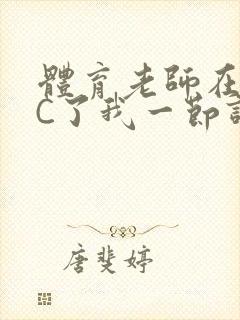 體育老師在
C了我一節
唐斐婷